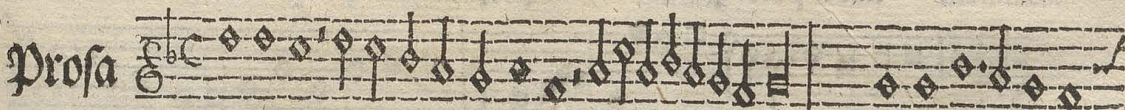 Proſa